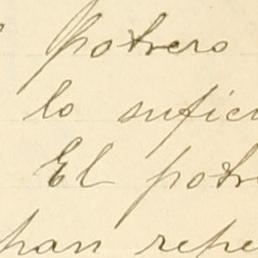 potrero
lo sufici
El potr
han repe